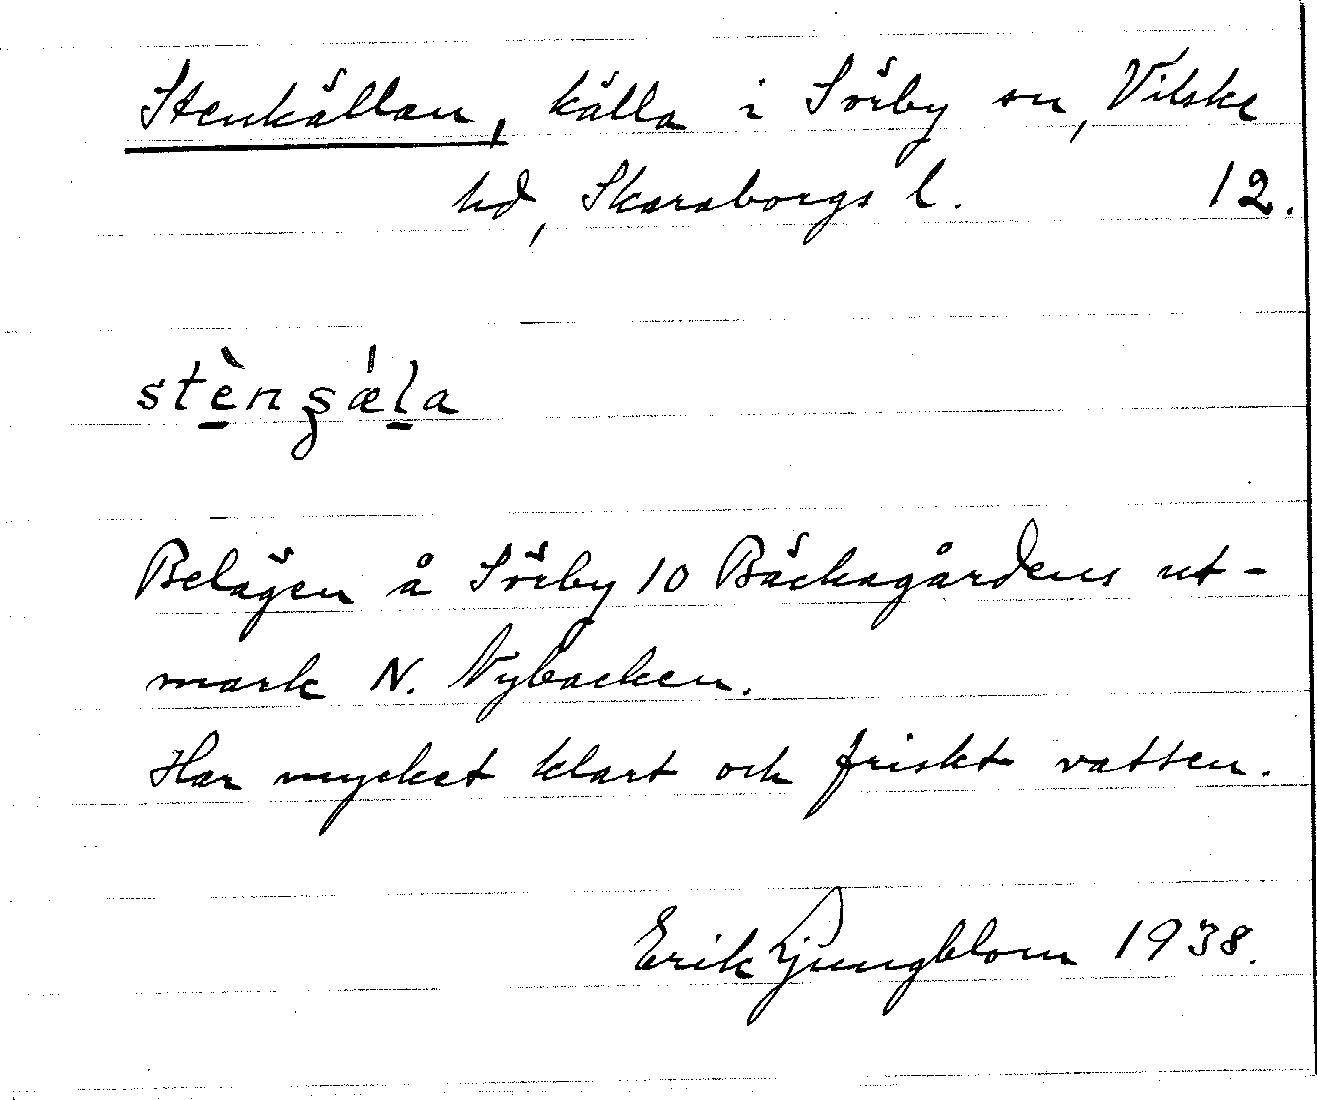 Stenkällan, källa i Sörby sn, Vilske
hd, Skaraborgs l. 12.
stè̱nʂæ̍ḻa
Belägen å Sörby 10 Bäckagårdens ut-
mark N. Nybacken.
Har mycket klart och friskt vatten.
Erik Ljungblom 1938.